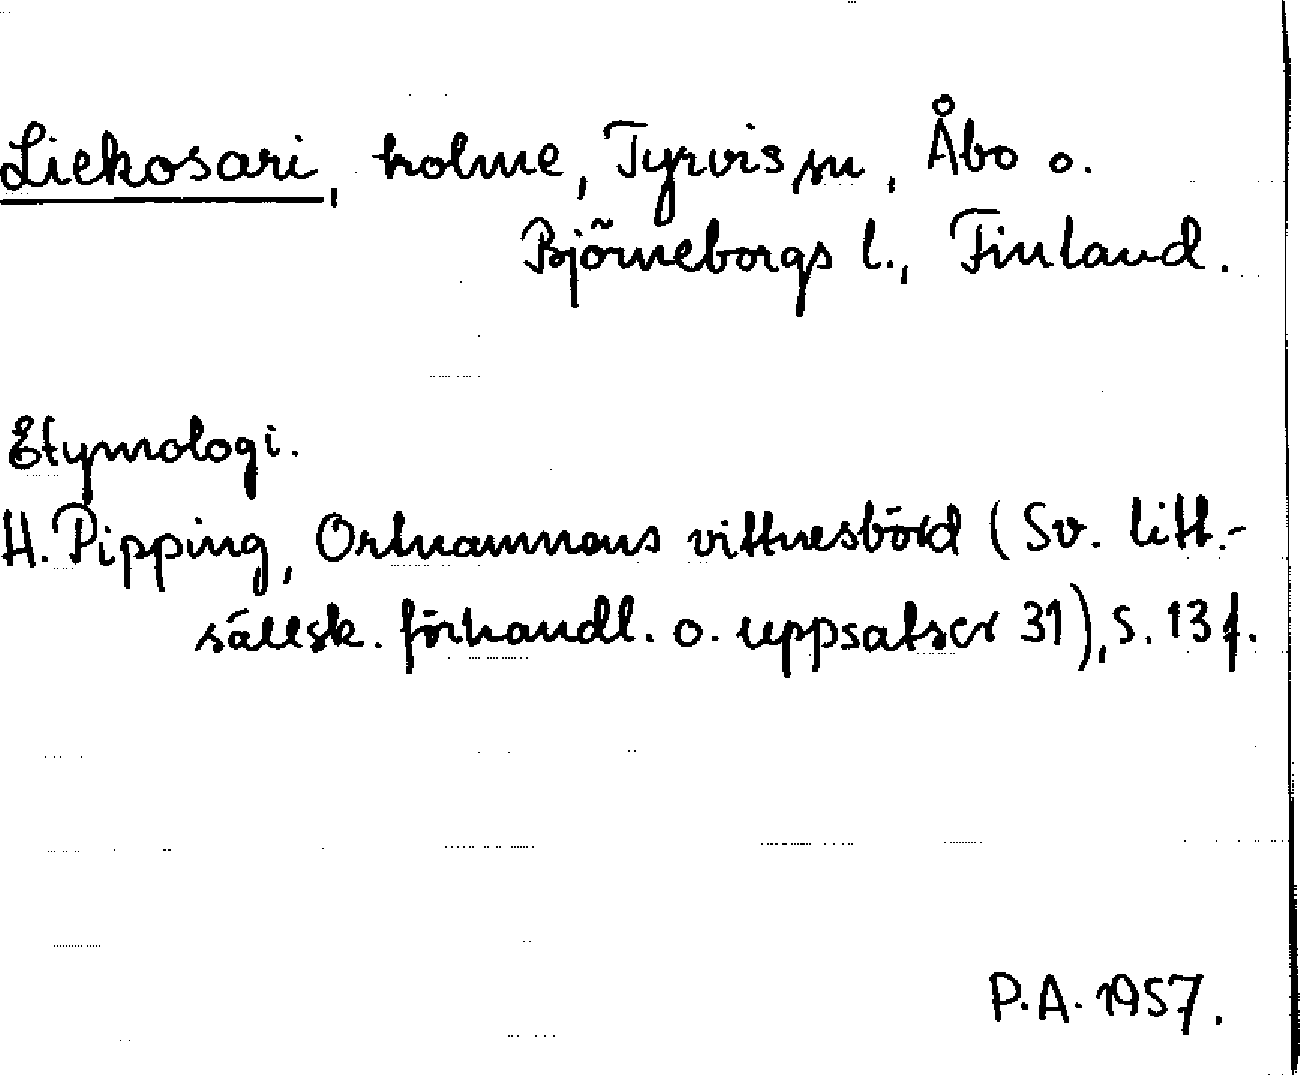 Liekosari, holme, Tyrvis sn, Åbo o.
Björneborgs l., Finland.
Etymologi.
H. Pipping, Ortnamnens vittnesbörd (Sv. litt.-
sällsk. förhandl. o. uppsatser 31), s. 13 f.
P.A. 1957.